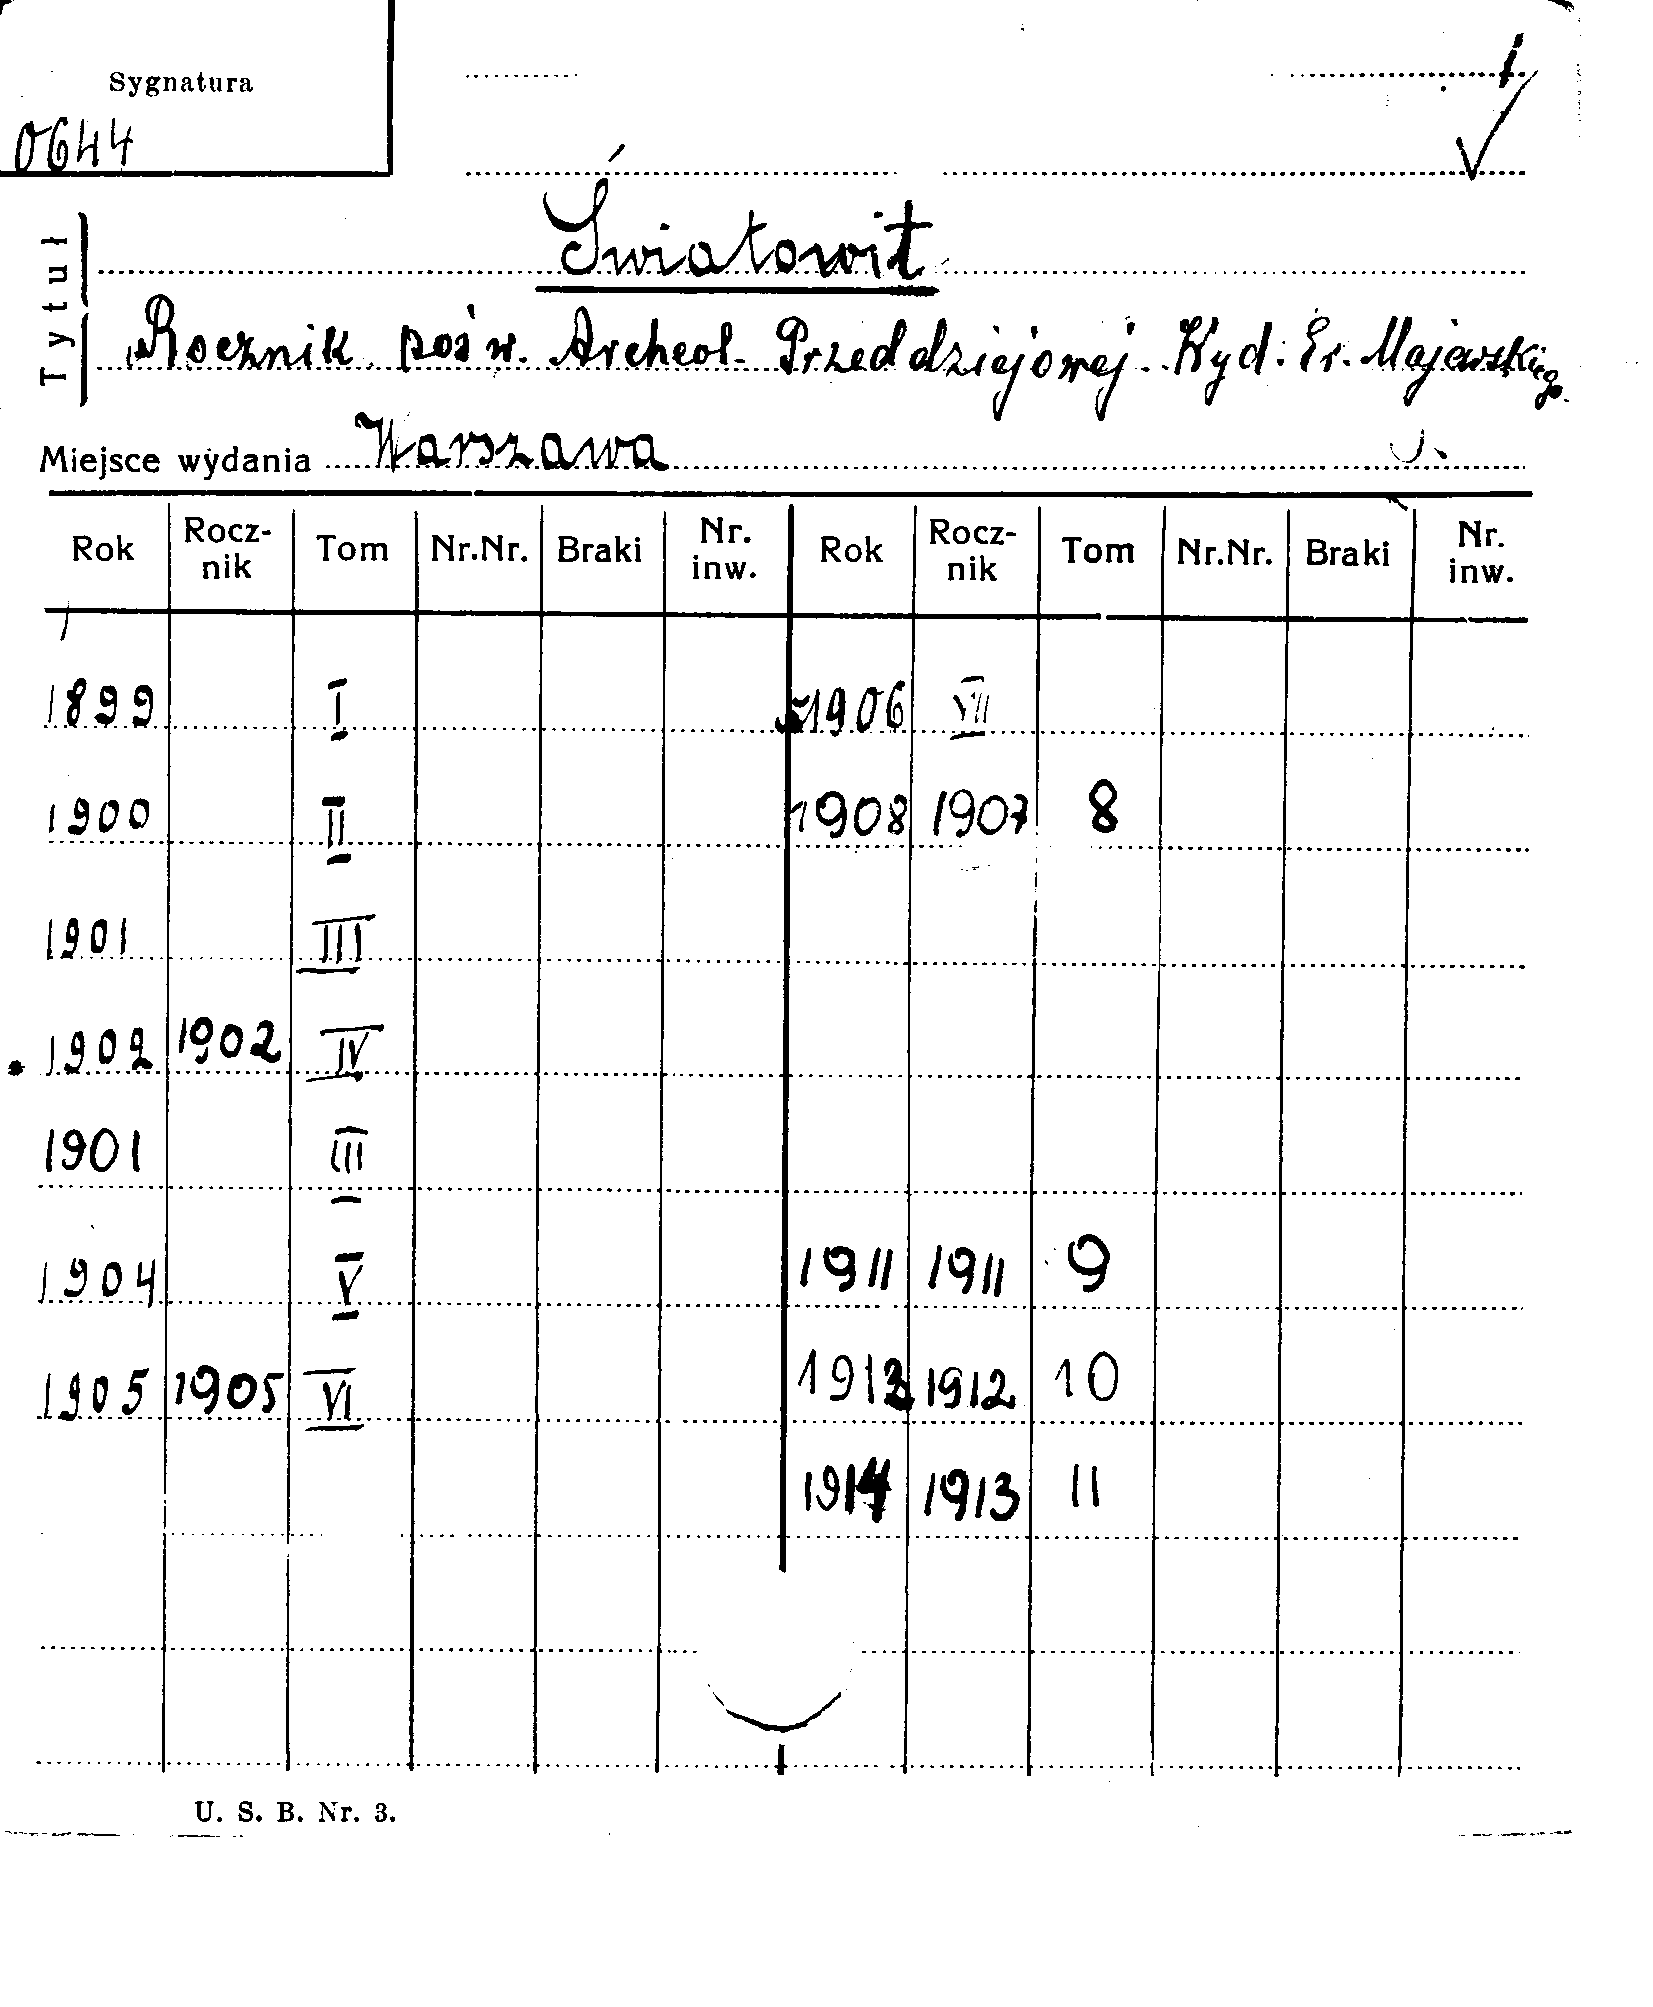 Sygnatura
0644
Tytuł
Światowit
Rocznik pośw. Archeol. Przeddziejowej. Wyd. Er. Majewskiego.
Miejsce wydania Warszawa
Rok Rocz-nik Tom Nr.Nr. Braki Nr. inw. Rok Rocz-nik Tom Nr.Nr. Braki Nr. inw.
1899 I 1906 VII
1900 II 1908 1907 8
1901 III
1902 1902 IV
1901 III
1904 V 1911 1911 9
1905 1905 VI 1912 1912 10
1914 1913 11
U. S. B. Nr. 3.